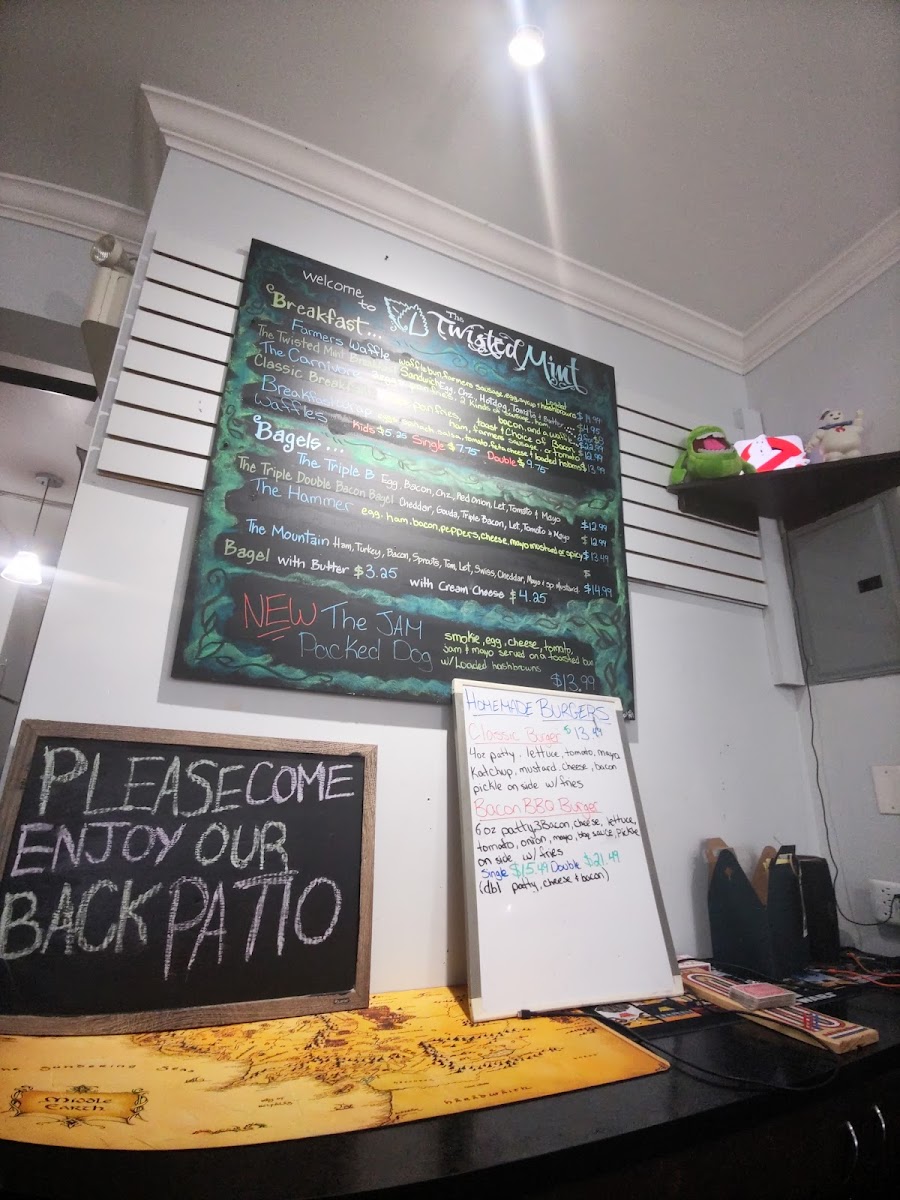 Welcome to The Twisted Mint
Breakfast...
Farmers Waffle waffle bun, farmers sausage, egg, syrup + Loaded hashbrowns $14.99
The Twisted Mint Breakfast Sandwich Egg, Chz, Hotdog, Tomato & Butter
The Carnivore
bacon, and a waffle
Classic Breakfast panfries, toast & Choice of Bacon, ham, farmers sausage, or tomato $12.99
Breakfast Wrap salsa, tomato, feta cheese & loaded hasbrns $13.99
Waffles Kids $5.25 Single $7.75 Double $9.75
Bagels...
The Triple B Egg, Bacon, Chz, Red Onion, Let, Tomato & Mayo $12.99
The Triple Double Bacon Bagel Cheddar, Gouda, Triple Bacon, Let, Tomato & Mayo $12.99
The Hammer egg, ham, bacon, peppers, cheese, mayo mustard or spicy $13.49
The Mountain Ham, Turkey, Bacon, Sprouts, Tom, Let, Swiss, Cheddar, Mayo & Sp. Mustard $14.99
Bagel with Butter $3.25 with Cream Cheese $4.25
NEW The JAM
Packed Dog
smokie, egg, cheese, tomato,
jam & mayo served on a toasted bun
w/Loaded hashbrowns
$13.99
HOMEMADE BURGERS
Classic Burger $13.49
4oz patty, lettuce, tomato, mayo
Katchup, mustard, cheese, bacon
pickle on side w/fries
Bacon BBQ Burger
6oz patty, 3Bacon, cheese, lettuce,
tomato, onion, mayo, bbq sauce, pickle
on side w/ fries
Single $15.49 Double $21.49
(dbl patty, cheese & bacon)
PLEASE COME
ENJOY OUR
BACK PATIO
The Sundering Seas
MIDDLE
EARTH
HARADWAITH